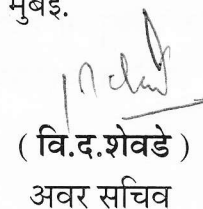 मुंबई.
( वि.द.शेवडे )
अवर सचिव